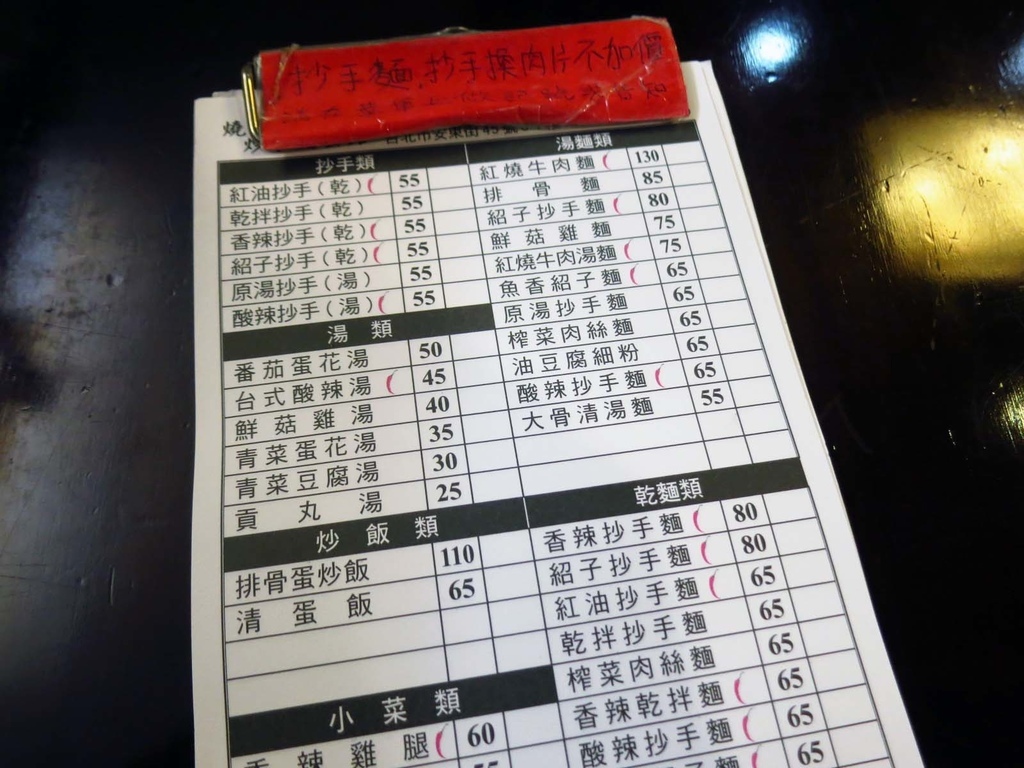 抄手麵.抄手換肉片不加價
燒
炒
台北市安東街45號
抄手類
紅油抄手(乾) 55
乾拌抄手(乾) 55
香辣抄手(乾) 55
紹子抄手(乾) 55
原湯抄手(湯) 55
酸辣抄手(湯) 55
湯類
番茄蛋花湯 50
台式酸辣湯 45
鮮菇雞湯 40
青菜蛋花湯 35
青菜豆腐湯 30
貢丸湯 25
炒飯類
排骨蛋炒飯 110
清蛋飯 65
小菜類
香辣雞腿 60
55
湯麵類
紅燒牛肉麵 130
排骨麵 85
紹子抄手麵 80
鮮菇雞麵 75
紅燒牛肉湯麵 75
魚香紹子麵 65
原湯抄手麵 65
榨菜肉絲麵 65
油豆腐細粉 65
酸辣抄手麵 65
大骨清湯麵 55
乾麵類
香辣抄手麵 80
紹子抄手麵 80
紅油抄手麵 65
乾拌抄手麵 65
榨菜肉絲麵 65
香辣乾拌麵 65
酸辣抄手麵 65
65